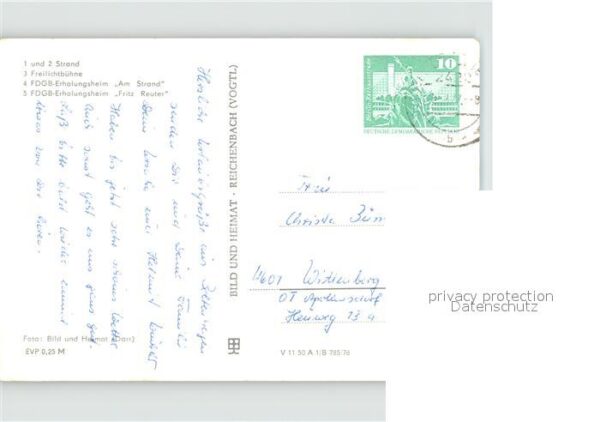 1 und 2 Strand
3 Freilichtbühne
4 FDGB-Erholungsheim „Am Strand"
5 FDGB-Erholungsheim „Fritz Reuter"
Herzliche Urlaubsgrüße aus
senden Dir und Deine Familie
Deine
Haben bis jetzt sehr schönes Wetter
auch sonst geht es uns ganz gut.
bitte bald wieder einmal
etwas von Dir hören.
Foto: Bild und Heimat (Darr)
EVP 0,25 M
BILD UND HEIMAT · REICHENBACH (VOGTL.)
V 11 50 A 1/B 785/76
10
DEUTSCHE DEMOKRATISCHE REPUBLIK
Frau
Christa
4601 Wittenberg
OT Apollensdorf
Heuweg 13 a
privacy protection
Datenschutz